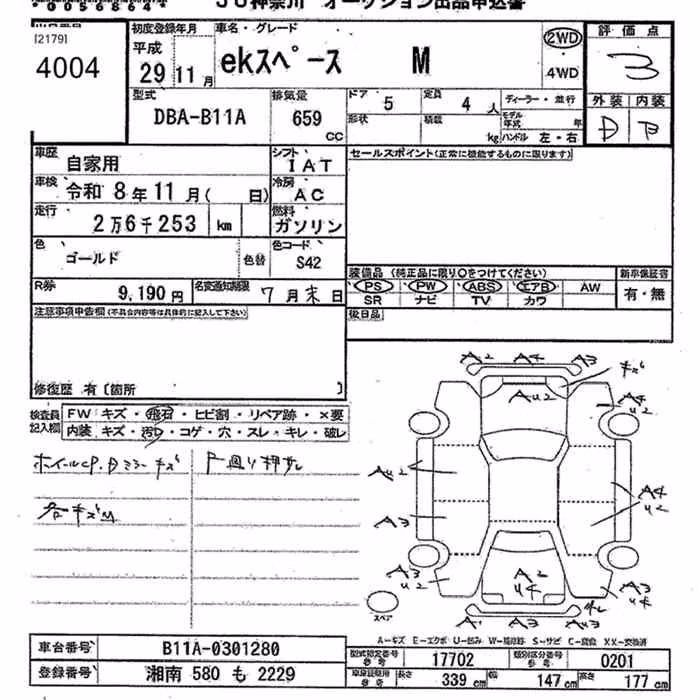 00568641 JU神奈川 オークション出品申込書
[2179]
4004
初度登録年月 車名・グレード
平成 29 11 月 ekスペース M
2WD
4WD
評価点
3
型式 DBA-B11A
排気量 659 CC
ドア 5 定員 4 人
形状 積載 kg
ディーラー・並行
モデル年式 年
ハンドル 左・右
外装 内装
D B
車歴 自家用
シフト IAT
セールスポイント(正常に機能するものに限ります)
車検 令和 8 年 11 月( 日)
冷房 AC
走行 2万6千253 km
燃料 ガソリン
色 ゴールド 色替
色コード S42
R券 9,190 円
名変通知期限 7 月 末 日
装備品 (純正品に限り○をつけてください)
PS PW ABS エアB AW
SR ナビ TV カワ
新車保証書
有・無
後日品
注意事項申告欄(不具合内容等は具体的に記入して下さい)
修復歴 有〔箇所 〕
検査員記入欄
FW キズ・飛石・ヒビ割・リペア跡・×要
内装 キズ・汚れ・コゲ・穴・スレ・キレ・破レ
A2 A4 A3
キズ
AU2
A4
U2
AU2
A3
A4
U2
A3
U2
A2
U4
A3
U4
A1 A3 A3
スペア
A-キズ E-エクボ U-凹み W-補修跡 S-サビ C-腐食 XX-交換済
車台番号 B11A-0301280
登録番号 湘南 580 も 2229
型式指定番号 参考 17702
類別区分番号 参考 0201
車庫証明用 参考 長さ 339 cm 幅 147 cm 高さ 177 cm